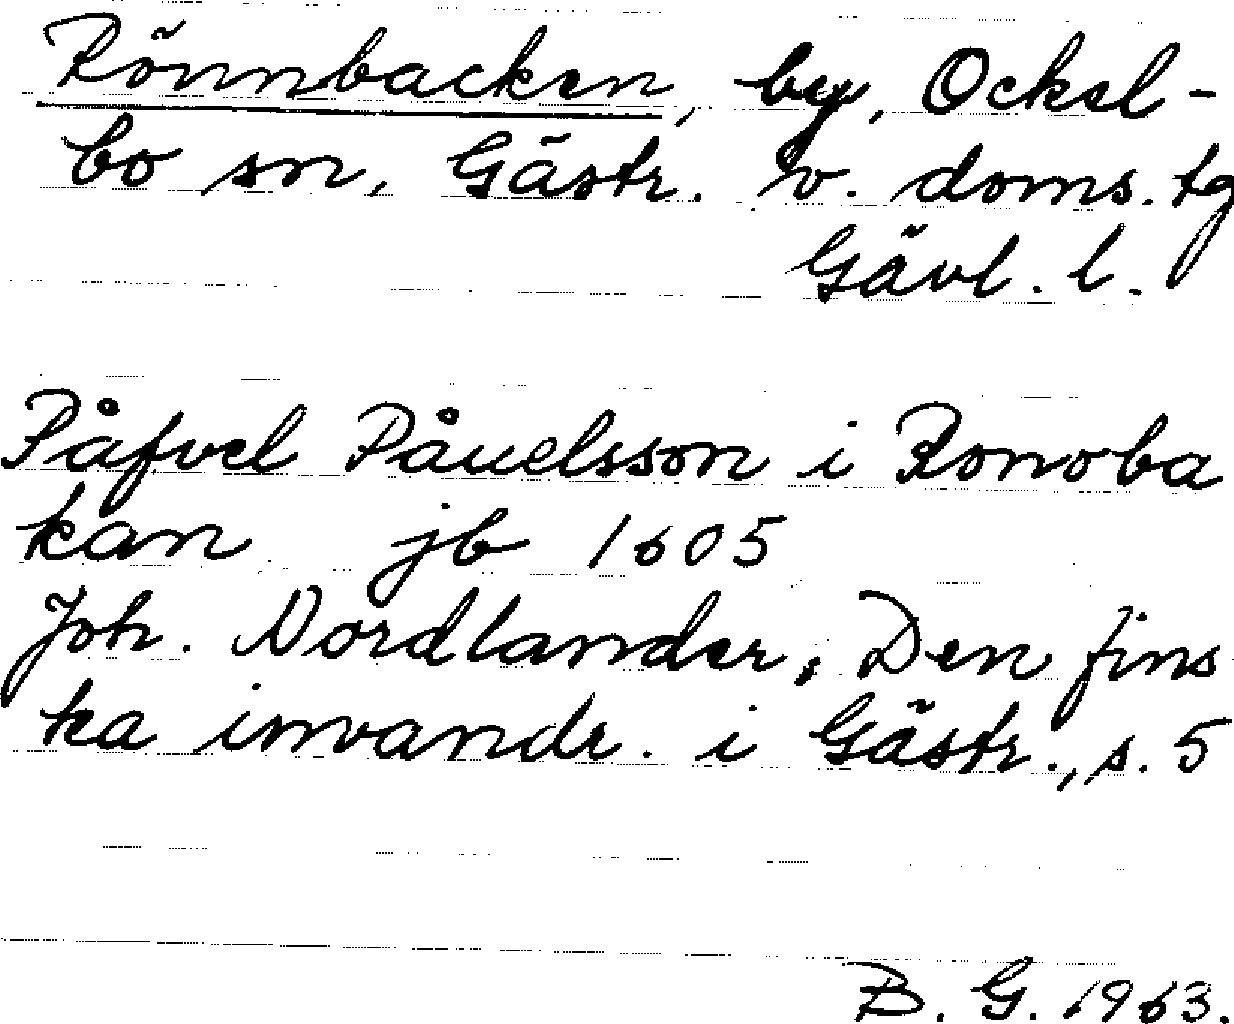 Rönnbacken, by, Ockel-
bo sn, Gästr. v. doms. tg
Gävl. l.
Påfvel Påuelsson i Ronoba
kan jb 1605
Joh. Nordlander, Den fins
ka invandr. i Gästr., s. 5
B. G. 1963.